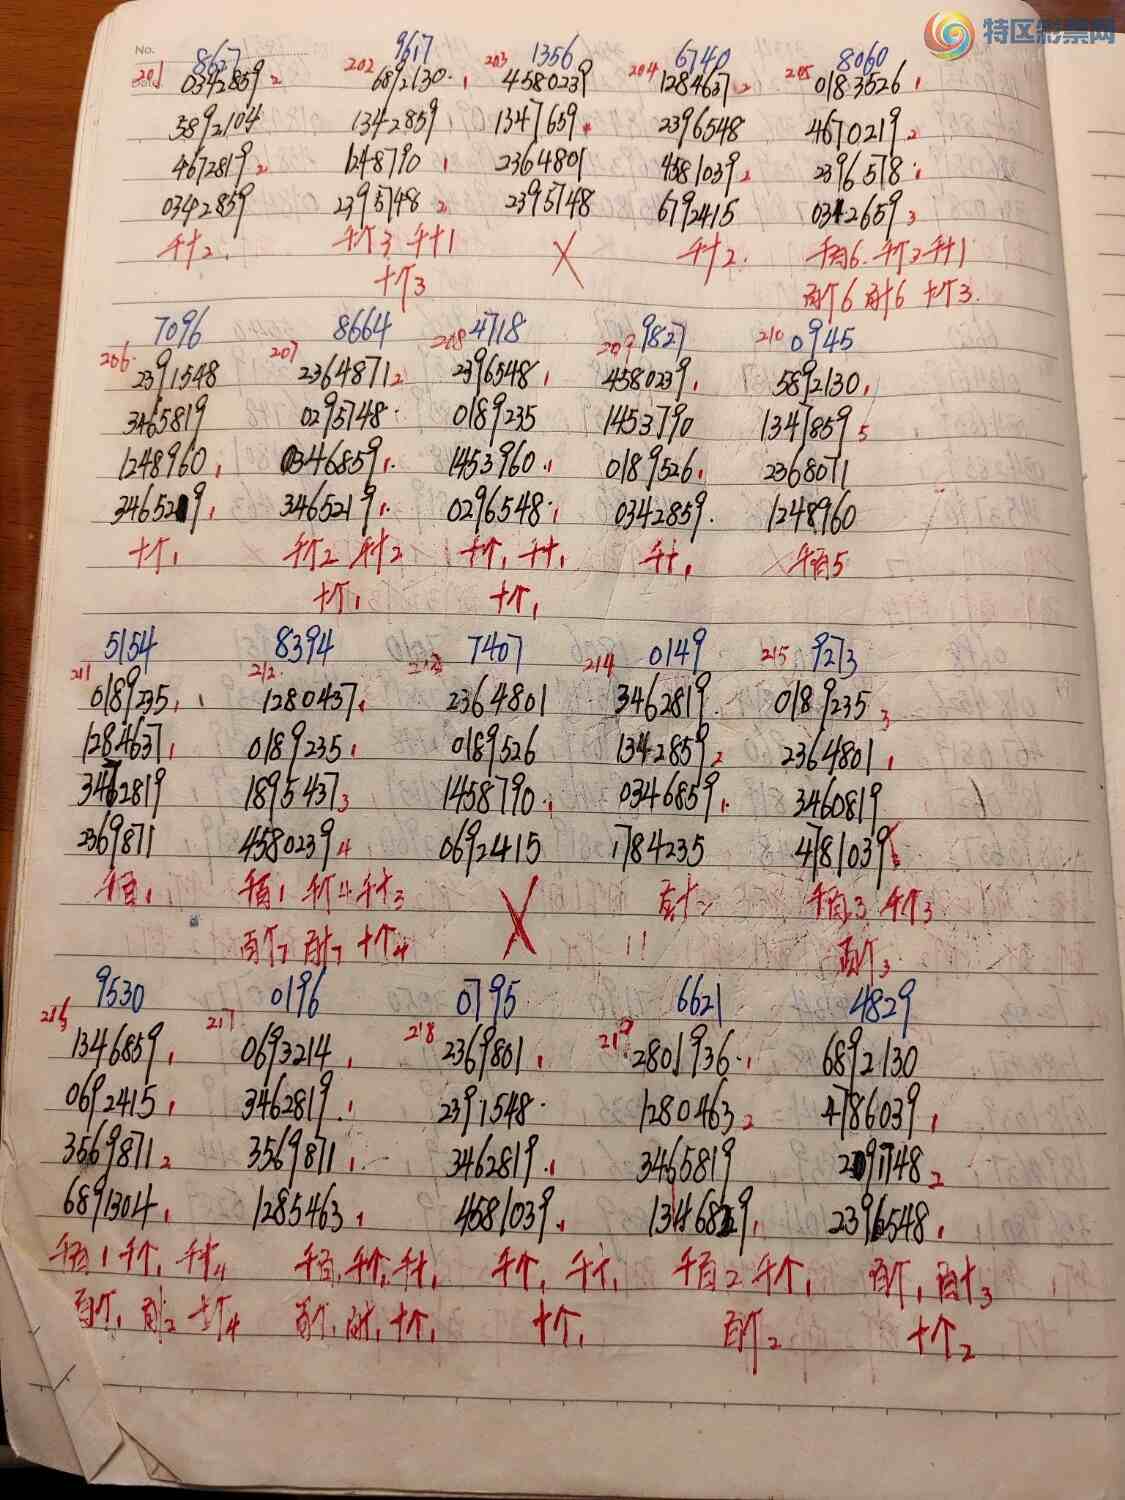 特区彩票网
No.
8627 9617 1356 6740 8060
201 0342859 2 202 6892130 1 203 4580239 204 1284637 2 205 0183526 1
5892104 1342859 1347659 2396548 4670219 2
4672819 2 1248790 1 2364801 4581039 2 2396578 1
0342859 2395748 2 2395748 6792415 0342659 3
千十2 千个3 千十1 X 千十2 千百6 千个3 千十1
十个3 百个6 百十6 十个3
7096 8664 4718 9827 0945
206 2391548 207 2364871 2 208 2396548 1 209 4580239 1 210 5892130 1
3465819 0295748 0189235 1453790 1347859 5
1248960 1 0346859 1 1453960 1 0189526 1 2368071
3465219 1 3465219 1 0296548 1 0342859 1248960
十个1 千个2 千十2 十个1 千十1 千十1 X 千百5
十个1 十个1
5154 8394 7407 0149 9273
211 0189235 1 212 1280437 1 213 2364801 214 3462819 215 0189235 3
1284637 1 0189235 1 0189526 1342859 2 2364801 1
3462819 1895437 3 1458790 0346859 1 3460819
2369871 4580239 4 0692415 1784235 4781039
千百1 千百1 千个4 千十3 X 百十2 千百3 千个3
百个7 百十7 十个4 百个3
9530 0196 0795 6621 4829
216 1346859 1 217 0693214 1 218 2369801 1 219 2801936 1 6892130
0692415 1 3462819 1 2391548 1280463 2 4786039 1
3569871 2 3569871 1 3462819 1 3465819 2091748 2
6891304 1 1285463 1 4581039 1 1346829 1 2396548 1
千百1 千个1 千十4 千百1 千个1 千十1 千个1 千十1 千百2 千个1 百个1 百十3
百个1 百十2 十个4 百个1 百十1 十个1 十个1 百个2 十个2